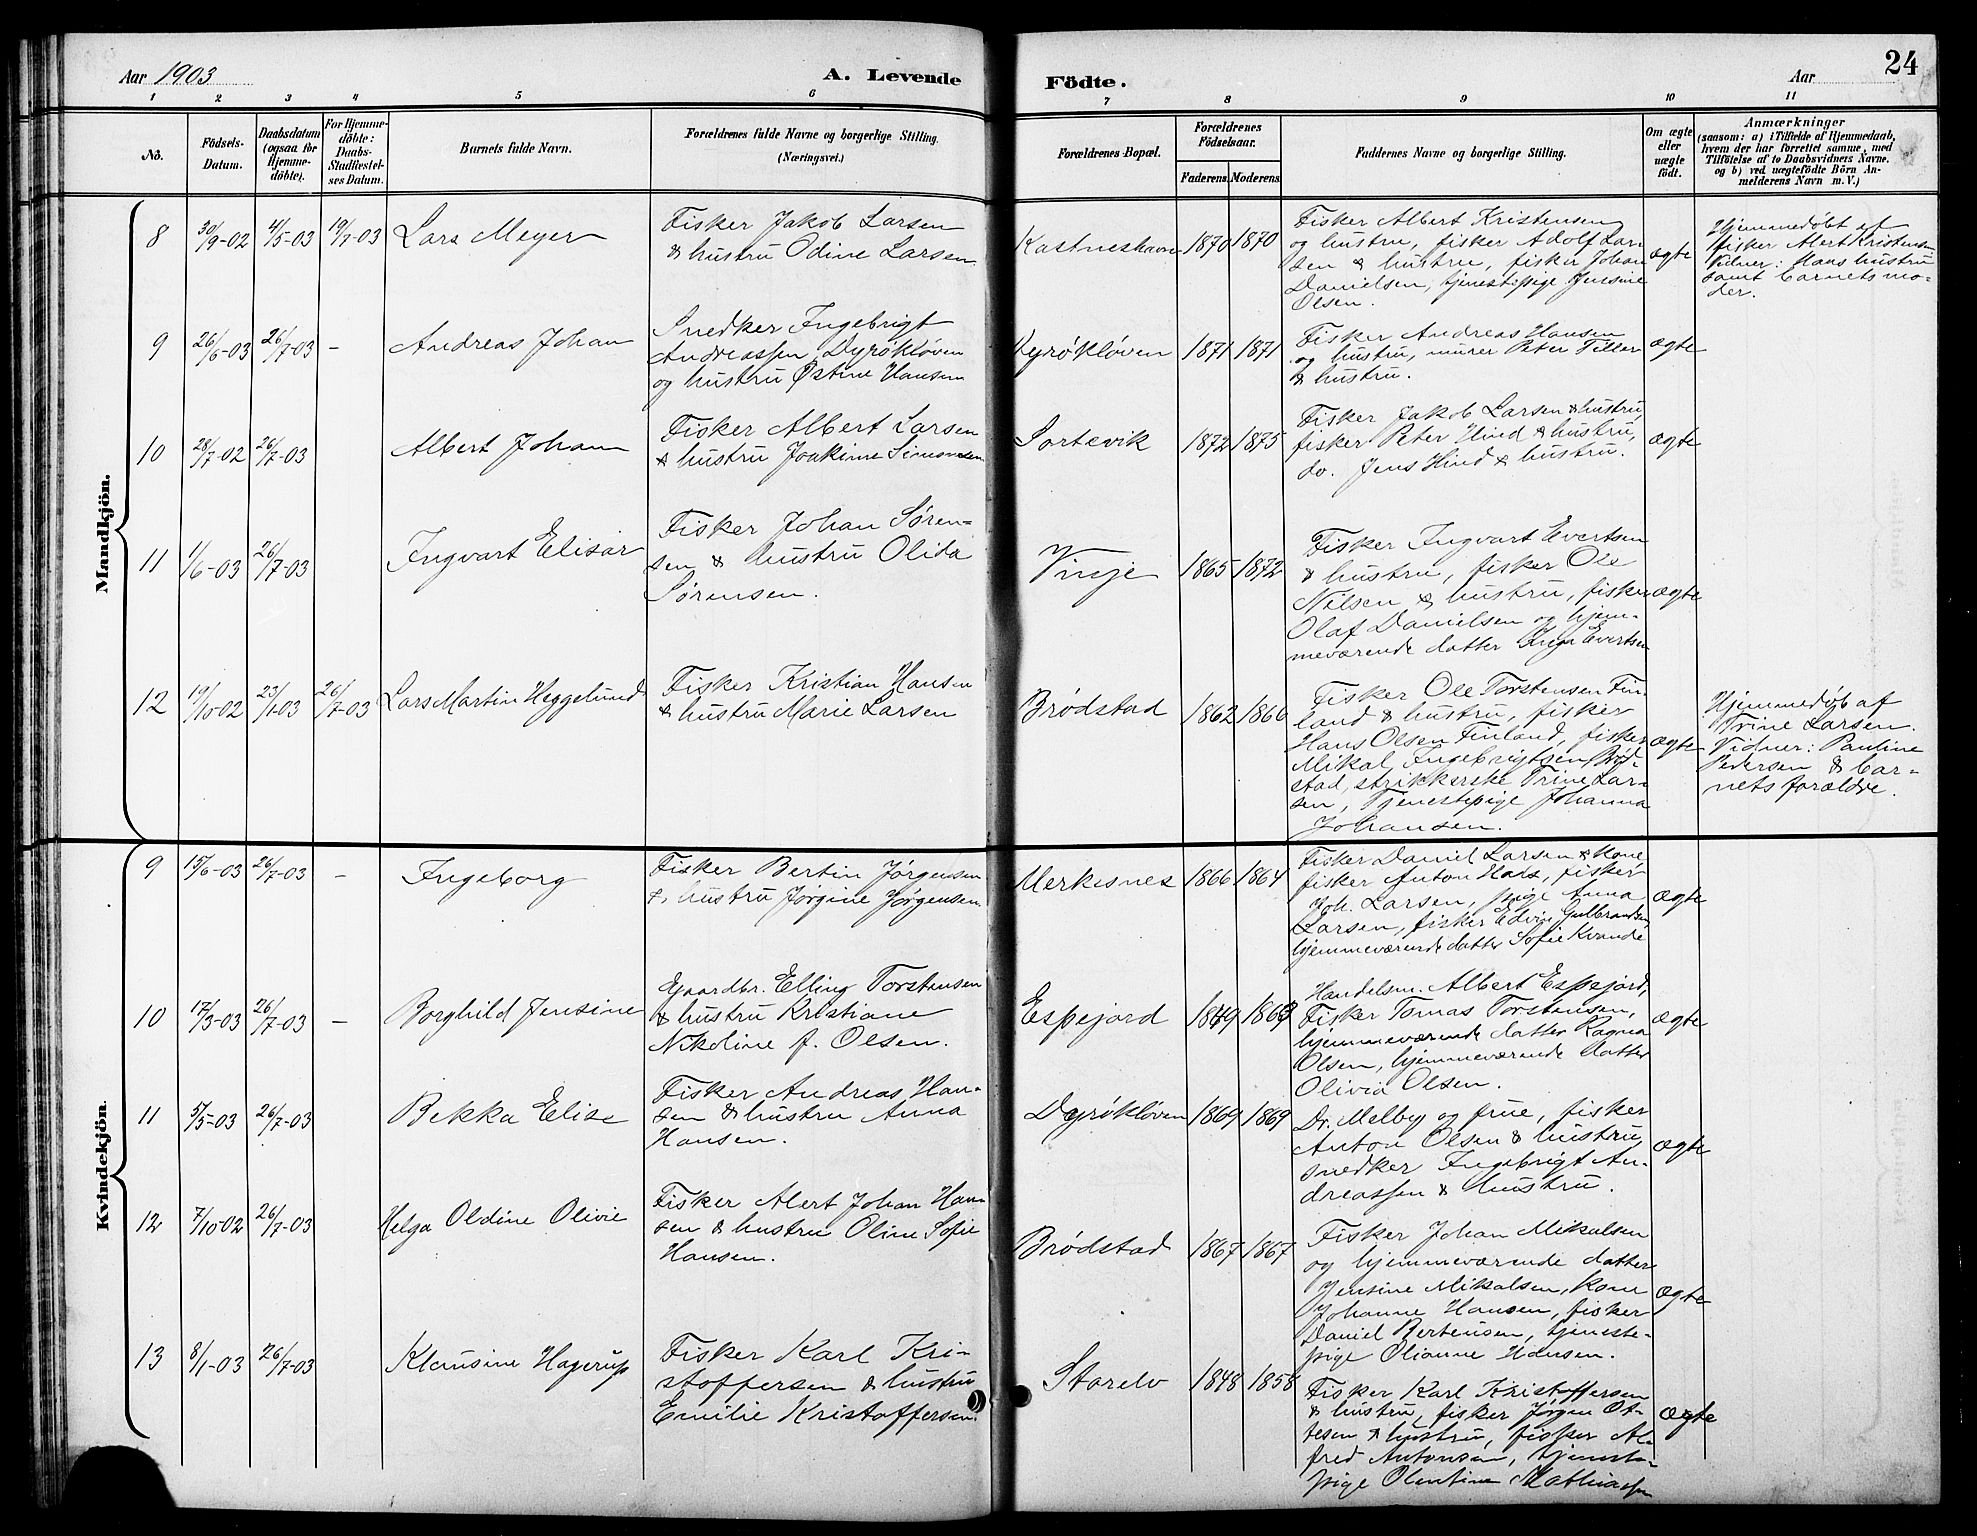 Aar 1903
A. Levende
Födte.
Aar
24
1 2 3 4 5 6 7 8 9 10 11
No.
Födsels-
Datum.
Daabsdatum
(ogsaa for
Hjemme-
döbte).
For Hjemme-
döbte:
Daabs-
Stadfæstel-
ses Datum.
Barnets fulde Navn.
Forældrenes fulde Navne og borgerlige Stilling.
(Næringsvei.)
Forældrenes Bopæl.
Forældrenes
Födselsaar.
Faderens. Moderens.
Faddernes Navne og borgerlige Stilling.
Om ægte
eller
uægte
födt.
Anmærkninger
(saasom: a) i Tilfælde af Hjemmedaab,
hvem der har forrettet samme, med
Tilföielse af to Daabsvidners Navne,
og b) ved uægtefödte Börn An-
melderens Navn m. V.)
Mandkjön.
8 30/9-02 4/5-03 19/7-03 Lars Meyer
Fisker Jakob Larsen
& hustru Odine Larsen
Kastneshavn 1870 1870
Fisker Albert Kristensen
og hustru, fisker Adolf Lar-
sen & hustru, fisker Johan
Danielsen, tjenestepige Jensine
Olsen.
ægte
Hjemmedøbt af
fisker Alert Kristensen
Vidner: Hans hustru
samt barnets mo-
der.
9 26/6-03 26/7-03 - Andreas Johan
Snedker Ingebrigt
Andreassen Dyrøkløven
og hustru Østine Hansen
Dyrøkløven 1871 1871
Fisker Andreas Hansen
og hustru, murer Peter Tiller
& hustru.
ægte
10 28/7-02 26/7-03 Albert Johan
Fisker Albert Larsen
& hustru Joakime Simonsen
Sortevik 1872 1875
Fisker Jakob Larsen & hustru,
fisker Peter Hind & hustru,
do. Jens Hind & hustru.
ægte
11 1/6-03 26/7-03 Ingvart Elisar
Fisker Johan Søren-
sen & hustru Olida
Sørensen.
Vinje 1865 1872
Fisker Ingvart Evertsen
& hustru, fisker Ole
Nilsen & hustru, fisker
Olaf Danielsen og hjem-
meværende datter Inga Evertsen
ægte
12 19/10-02 23/1-03 26/7-03 Lars Martin Heggelund
Fisker Kristian Hansen
& hustru Marie Larsen
Brødstad 1862 1866
Fisker Ole Torstensen Fin-
land & hustru, fisker
Hans Olsen Finland, fisker
Mikal Ingebrigtsen Brød-
stad, strikkerske Trine Lar-
sen, Tjenestepige Johanna
Johansen.
ægte
Hjemmedøb af
Trine Larsen.
Vidner: Pauline
Pedersen & bar-
nets forældre.
Kvindekjön.
9 15/6-03 26/7-03 - Ingeborg
Fisker Bertin Jørgensen
& hustru Jørgine Jørgensen.
Merkesnes 1866 1864
Fisker Daniel Larsen & kone,
fisker Anton Hals, fisker
Joh. Larsen, pige Anna
Larsen, fisker Edvin Gulbrandsen,
hjemmeværende datter Sofie Kvande
ægte
10 17/3-03 26/7-03 - Borghild Jensine
Gaardbr. Elling Torstensen
& hustru Kristiane
Nikoline f. Olsen.
Espejord 1849 1863
Handelsm. Albert Espejord,
Fisker Tomas Torstensen,
hjemmeværende datter Ragna
Olsen, hjemmeværende datter
Olivia Olsen.
ægte
11 5/5-03 26/7-03 Bekka Elise
Fisker Andreas Han-
sen & hustru Anna
Hansen.
Dyrøkløven 1869 1869
Dr. Melby og frue, fisker
Anton Olsen & hustru
snedker Ingebrigt An-
dreassen & hustru.
ægte
12 7/10-02 26/7-03 Helga Oldine Olivie
Fisker Alert Johan Han-
sen & hustru Oline Sofie
Hansen.
Brødstad 1867 1867
Fisker Johan Mikalsen
og hjemmeværende datter
Jensine Mikalsen, kone
Johanne Hansen, fisker
Daniel Bertensen, tjeneste-
pige Olianne Hansen.
ægte
13 8/1-03 26/7-03 Klausine Hagerup
Fisker Karl Kri-
stoffersen & hustru
Emilie Kristoffersen.
Storelv 1848 1858
Fisker Karl Kristoffersen
& hustru, fisker Jørgen Ot-
tesen & hustru, fisker Al-
fred Antonsen, tjeneste-
pige Olentine Mathiassen
ægte